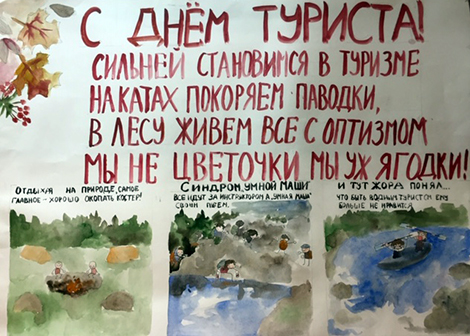 С ДНЁМ ТУРИСТА!
СИЛЬНЕЙ СТАНОВИМСЯ В ТУРИЗМЕ
НА КАТАХ ПОКОРЯЕМ ПАВОДКИ,
В ЛЕСУ ЖИВЕМ ВСЕ С ОПТИЗМОМ
МЫ НЕ ЦВЕТОЧКИ МЫ УЖ ЯГОДКИ!
ОТДЫХАЯ НА ПРИРОДЕ, САМОЕ
ГЛАВНОЕ - ХОРОШО ОКОПАТЬ КОСТЕР!
СИНДРОМ „УМНОЙ МАШИ"
ВСЕ ИДУТ ЗА ИНСТРУКТОРОМ А „УМНАЯ МАША"
СВОИМ ПУТЕМ.
И ТУТ ЖОРА ПОНЯЛ...
ЧТО БЫТЬ ВОДНЫМ ТУРИСТОМ ЕМУ
БОЛЬШЕ НЕ НРАВИТСЯ